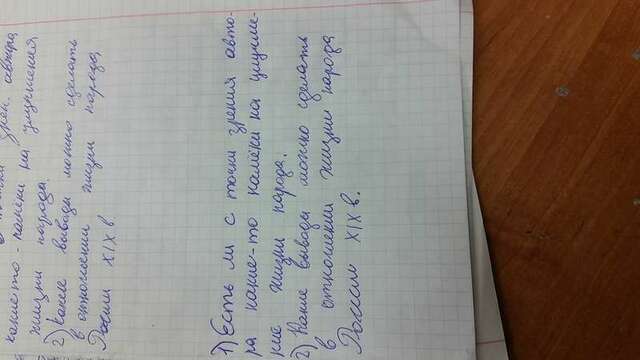 точки зрен. автора
какие то - намёки на улучшения
жизни народа.
2) Какие выводы можно сделать
в отношении жизни народа
России XIX в.
1) Есть ли с точки зрения авто-
ра какие-то намёки на улучше-
ние жизни народа.
2) Какие вывады можно сделать
в отношении жизни народа
России XIX в.